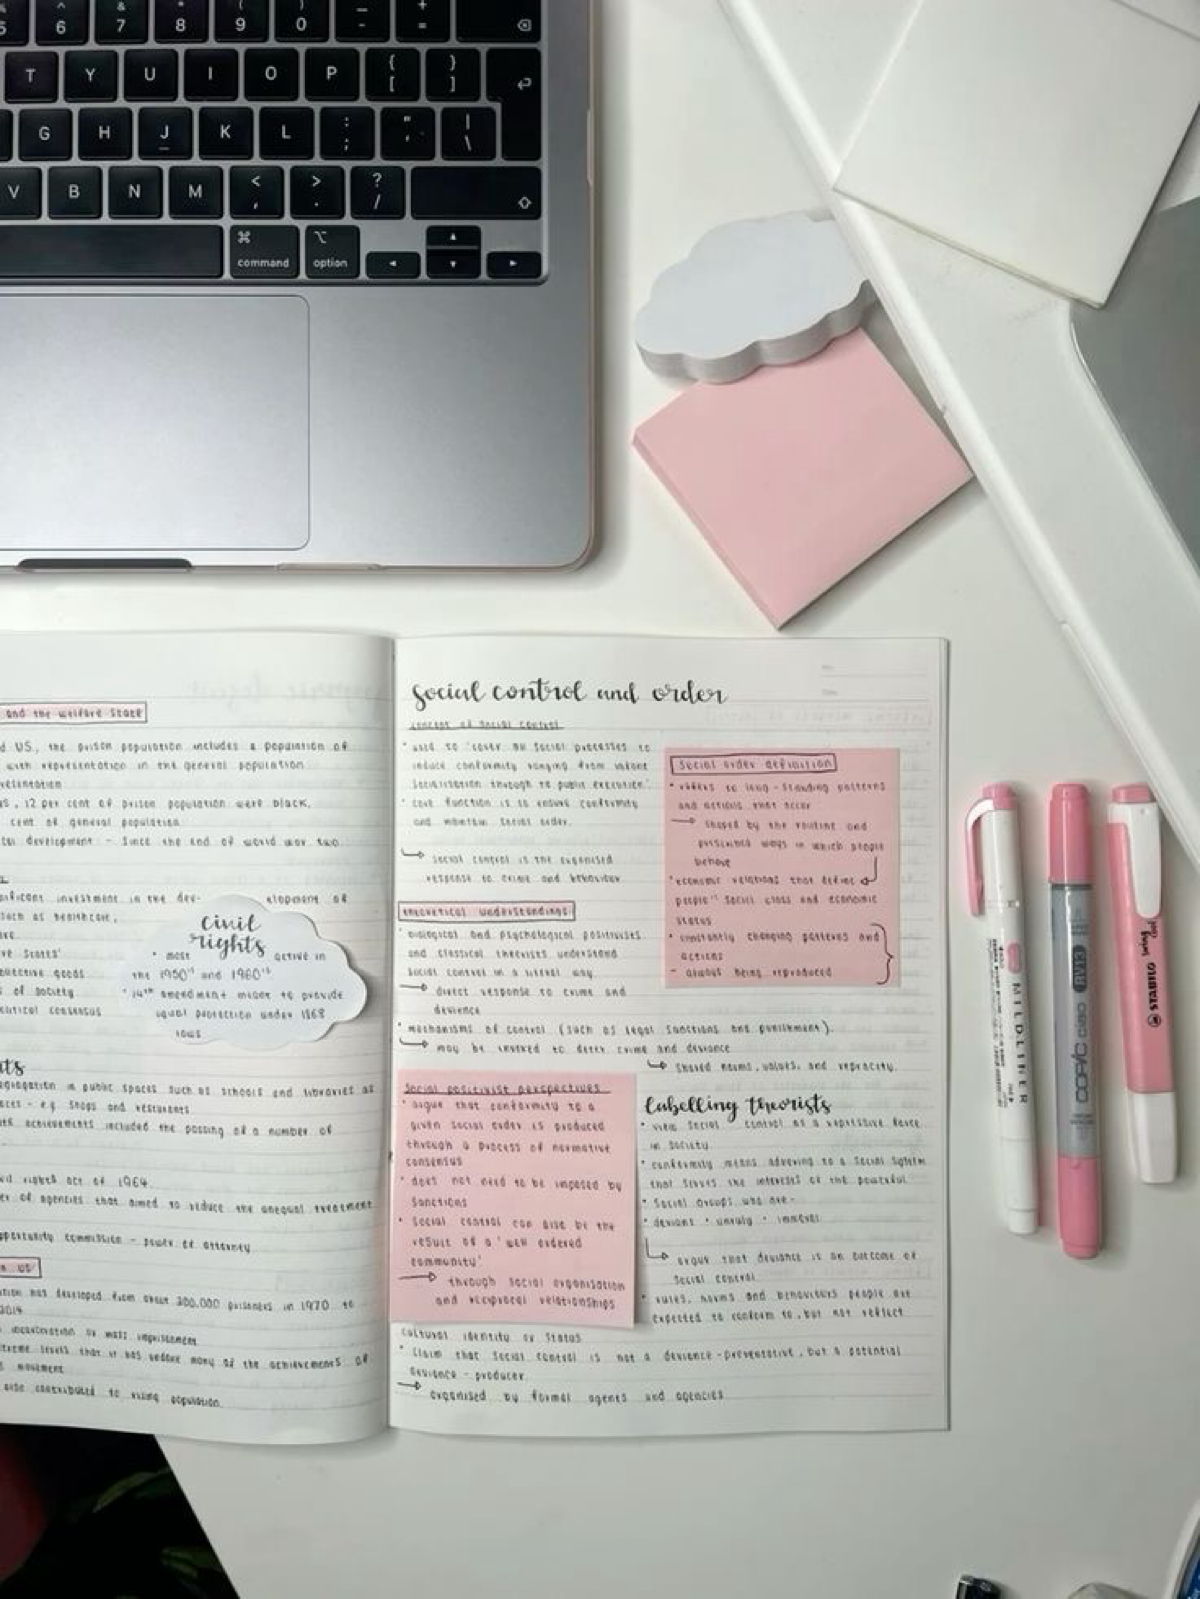 ^ & * ( ) _ +
5 6 7 8 9 0 - =
T Y U I O P { [ } ]
G H J K L : ; " ' | \
V B N M < , > . ? /
⌘ command ⌥ option
and the welfare state
US, the prison population includes a population of
with representation in the general population
12 per cent of prison population were black,
cent of general population
development - Since the end of world war two
investment in the dev- elopment of
such as healthcare.
States'
goods
of society
consensus
civil
rights
• most active in
the 1950's and 1960's
• 14th amendment meant to provide
equal protection under 1868
laws
in public spaces such as schools and libraries as
- e.g. shops and
achievements included the passing of a number of
rights act of 1964
of agencies that aimed to reduce the unequal treatment
commission - power of attorney
US
has developed from about 200,000 prisoners in 1970 to
2014
incarceration or mass imprisonment
levels that it has undone many of the achievements of
movement
contributed to rising population
Social control and order
concept of social control
• used to 'cover all social processes to
induce conformity ranging from infant
socialisation through to public execution'
• core function is to ensure conformity
and maintain social order.
↳ social control is the organised
response to crime and behaviour
Social order definition
• refers to long-standing patterns
and actions that occur
→ shaped by the routine and
prescribed ways in which people
behave
• economic relations that define
people's social class and economic
status
• constantly changing patterns and
actions
- always being reproduced
theoretical understandings
• biological and psychological positivists
and classical theorists understand
social control in a literal way
→ direct response to crime and
deviance
• mechanisms of control (such as legal sanctions and punishment).
↳ may be invoked to deter crime and deviance
↳ shared norms, values, and
Social positivist perspectives
• argue that conformity to a
given social order is produced
through a process of normative
consensus
• does not need to be imposed by
sanctions
• social control can also be the
result of a 'well ordered
community'
→ through social organisation
and reciprocal relationships
labelling theorists
• view social control as a repressive force
in society
• conformity means adhering to a social system
that serves the interests of the powerful
• social groups who are -
• deviant • unruly • immoral
↳ argue that deviance is an outcome of
social control
• rules, norms and behaviours people are
expected to conform to, but not reflect
cultural identity or status
• claim that social control is not a deviance-preventative, but a potential
deviance - producer
→ organised by formal agents and agencies
MILDLINER
COPIC ciao RV13
STABILO swing cool